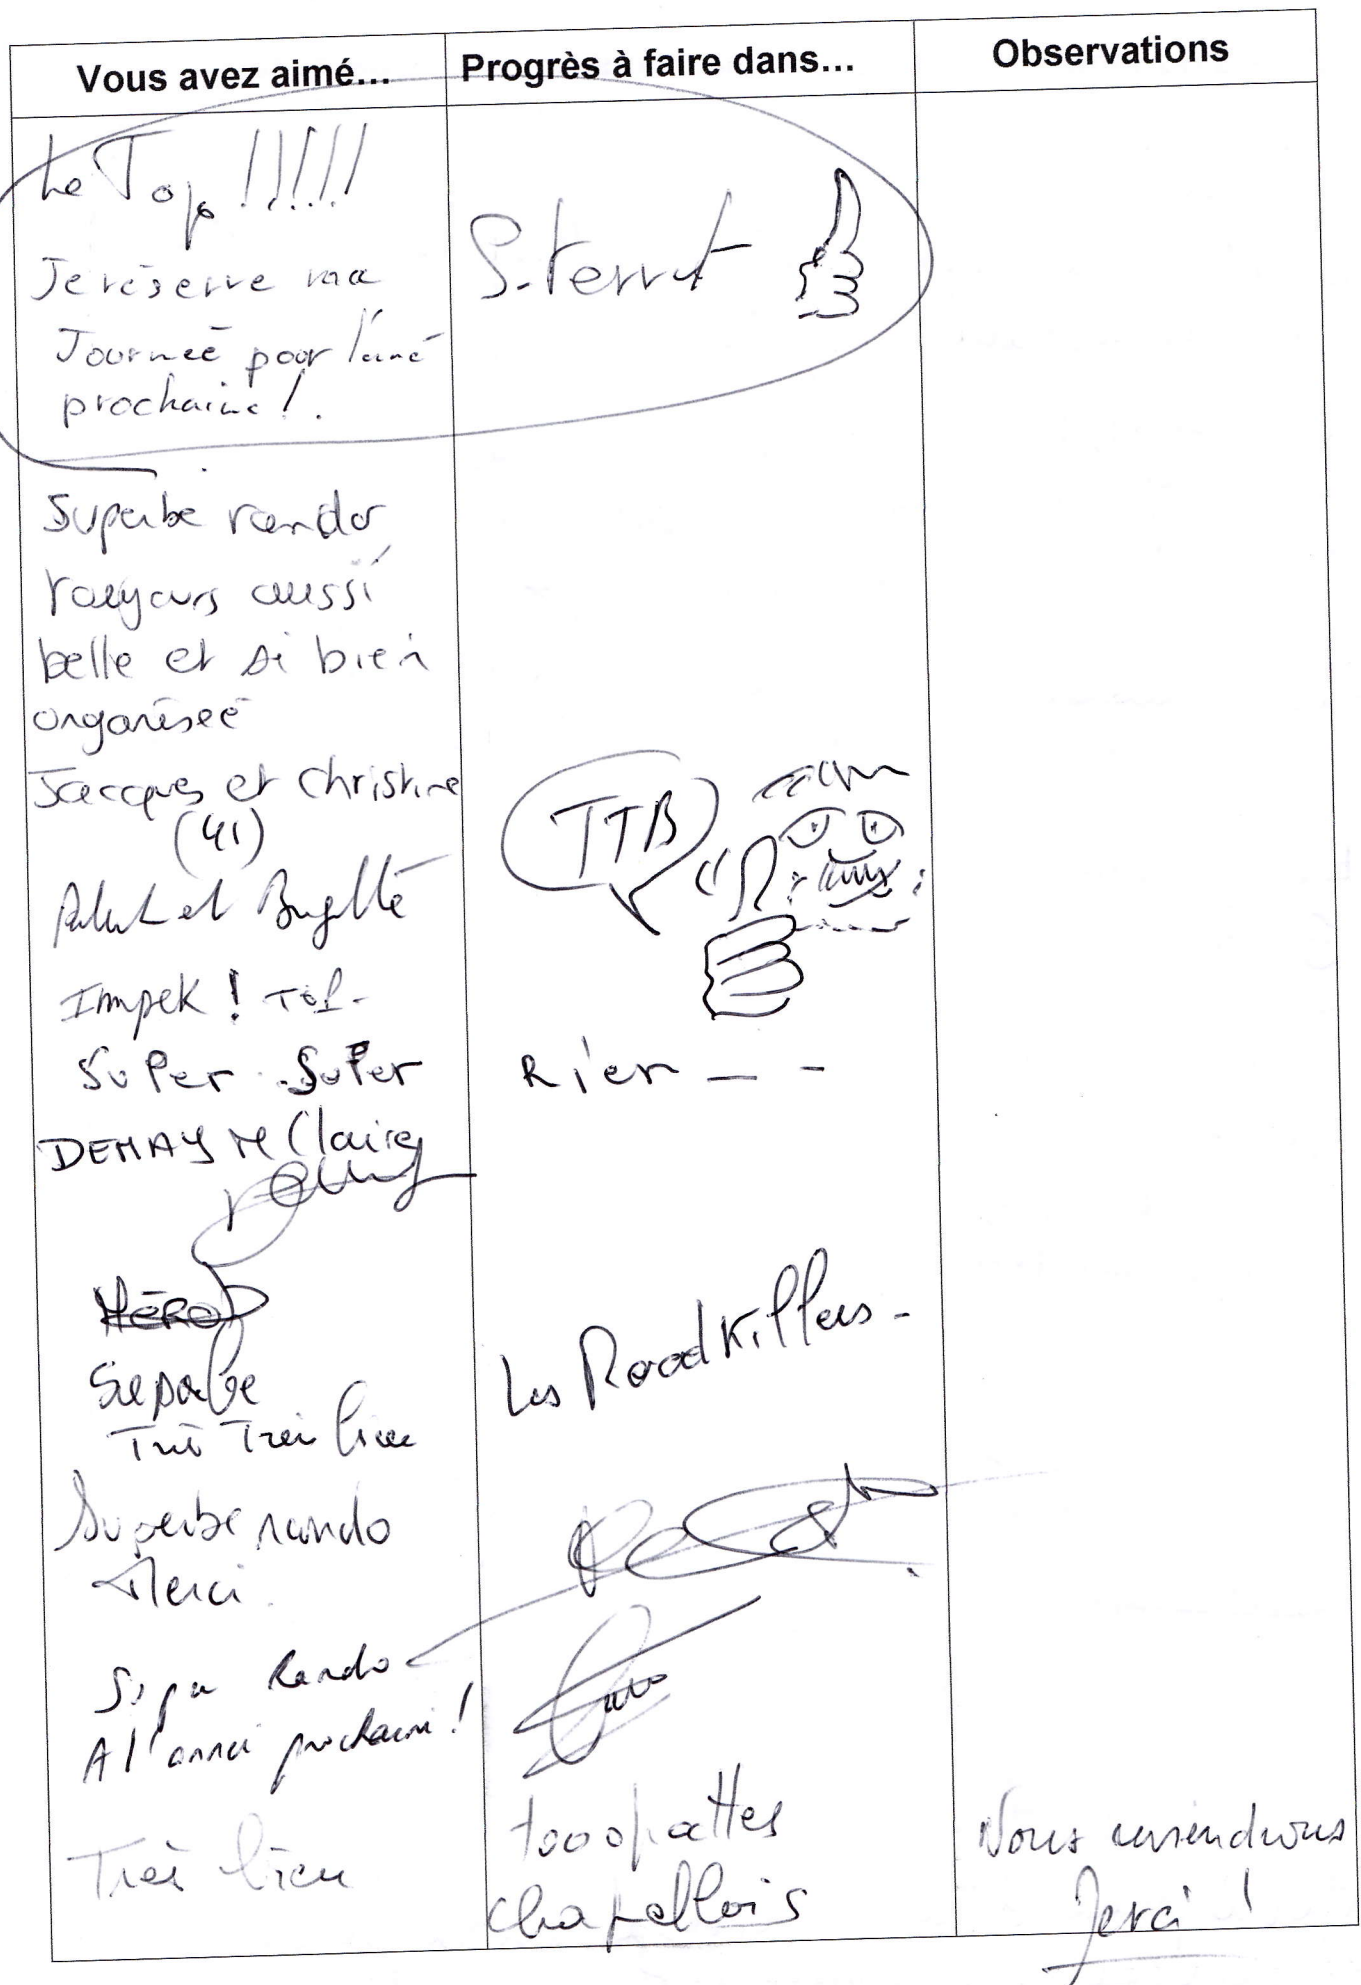 Vous avez aimé... Progrès à faire dans... Observations
Le Top !!!!!
Je réserve ma
Journeé pour
prochaine !.
S. Terrut
Superbe rando
toujours aussi
belle et si bien
organiseé
Jacques et Christine
(41)
TTB
et Brigitte
Impek ! Tof-
Super Super
Rien _ _
DEMAY M Claire
HÉRO
Les Road Killers -
Très Très bien
Superbe rando
Merci.
Super Rando
A l'année prochaine !
Très bien
1000 pattes
chapellois
Nous reviendrons
Merci !